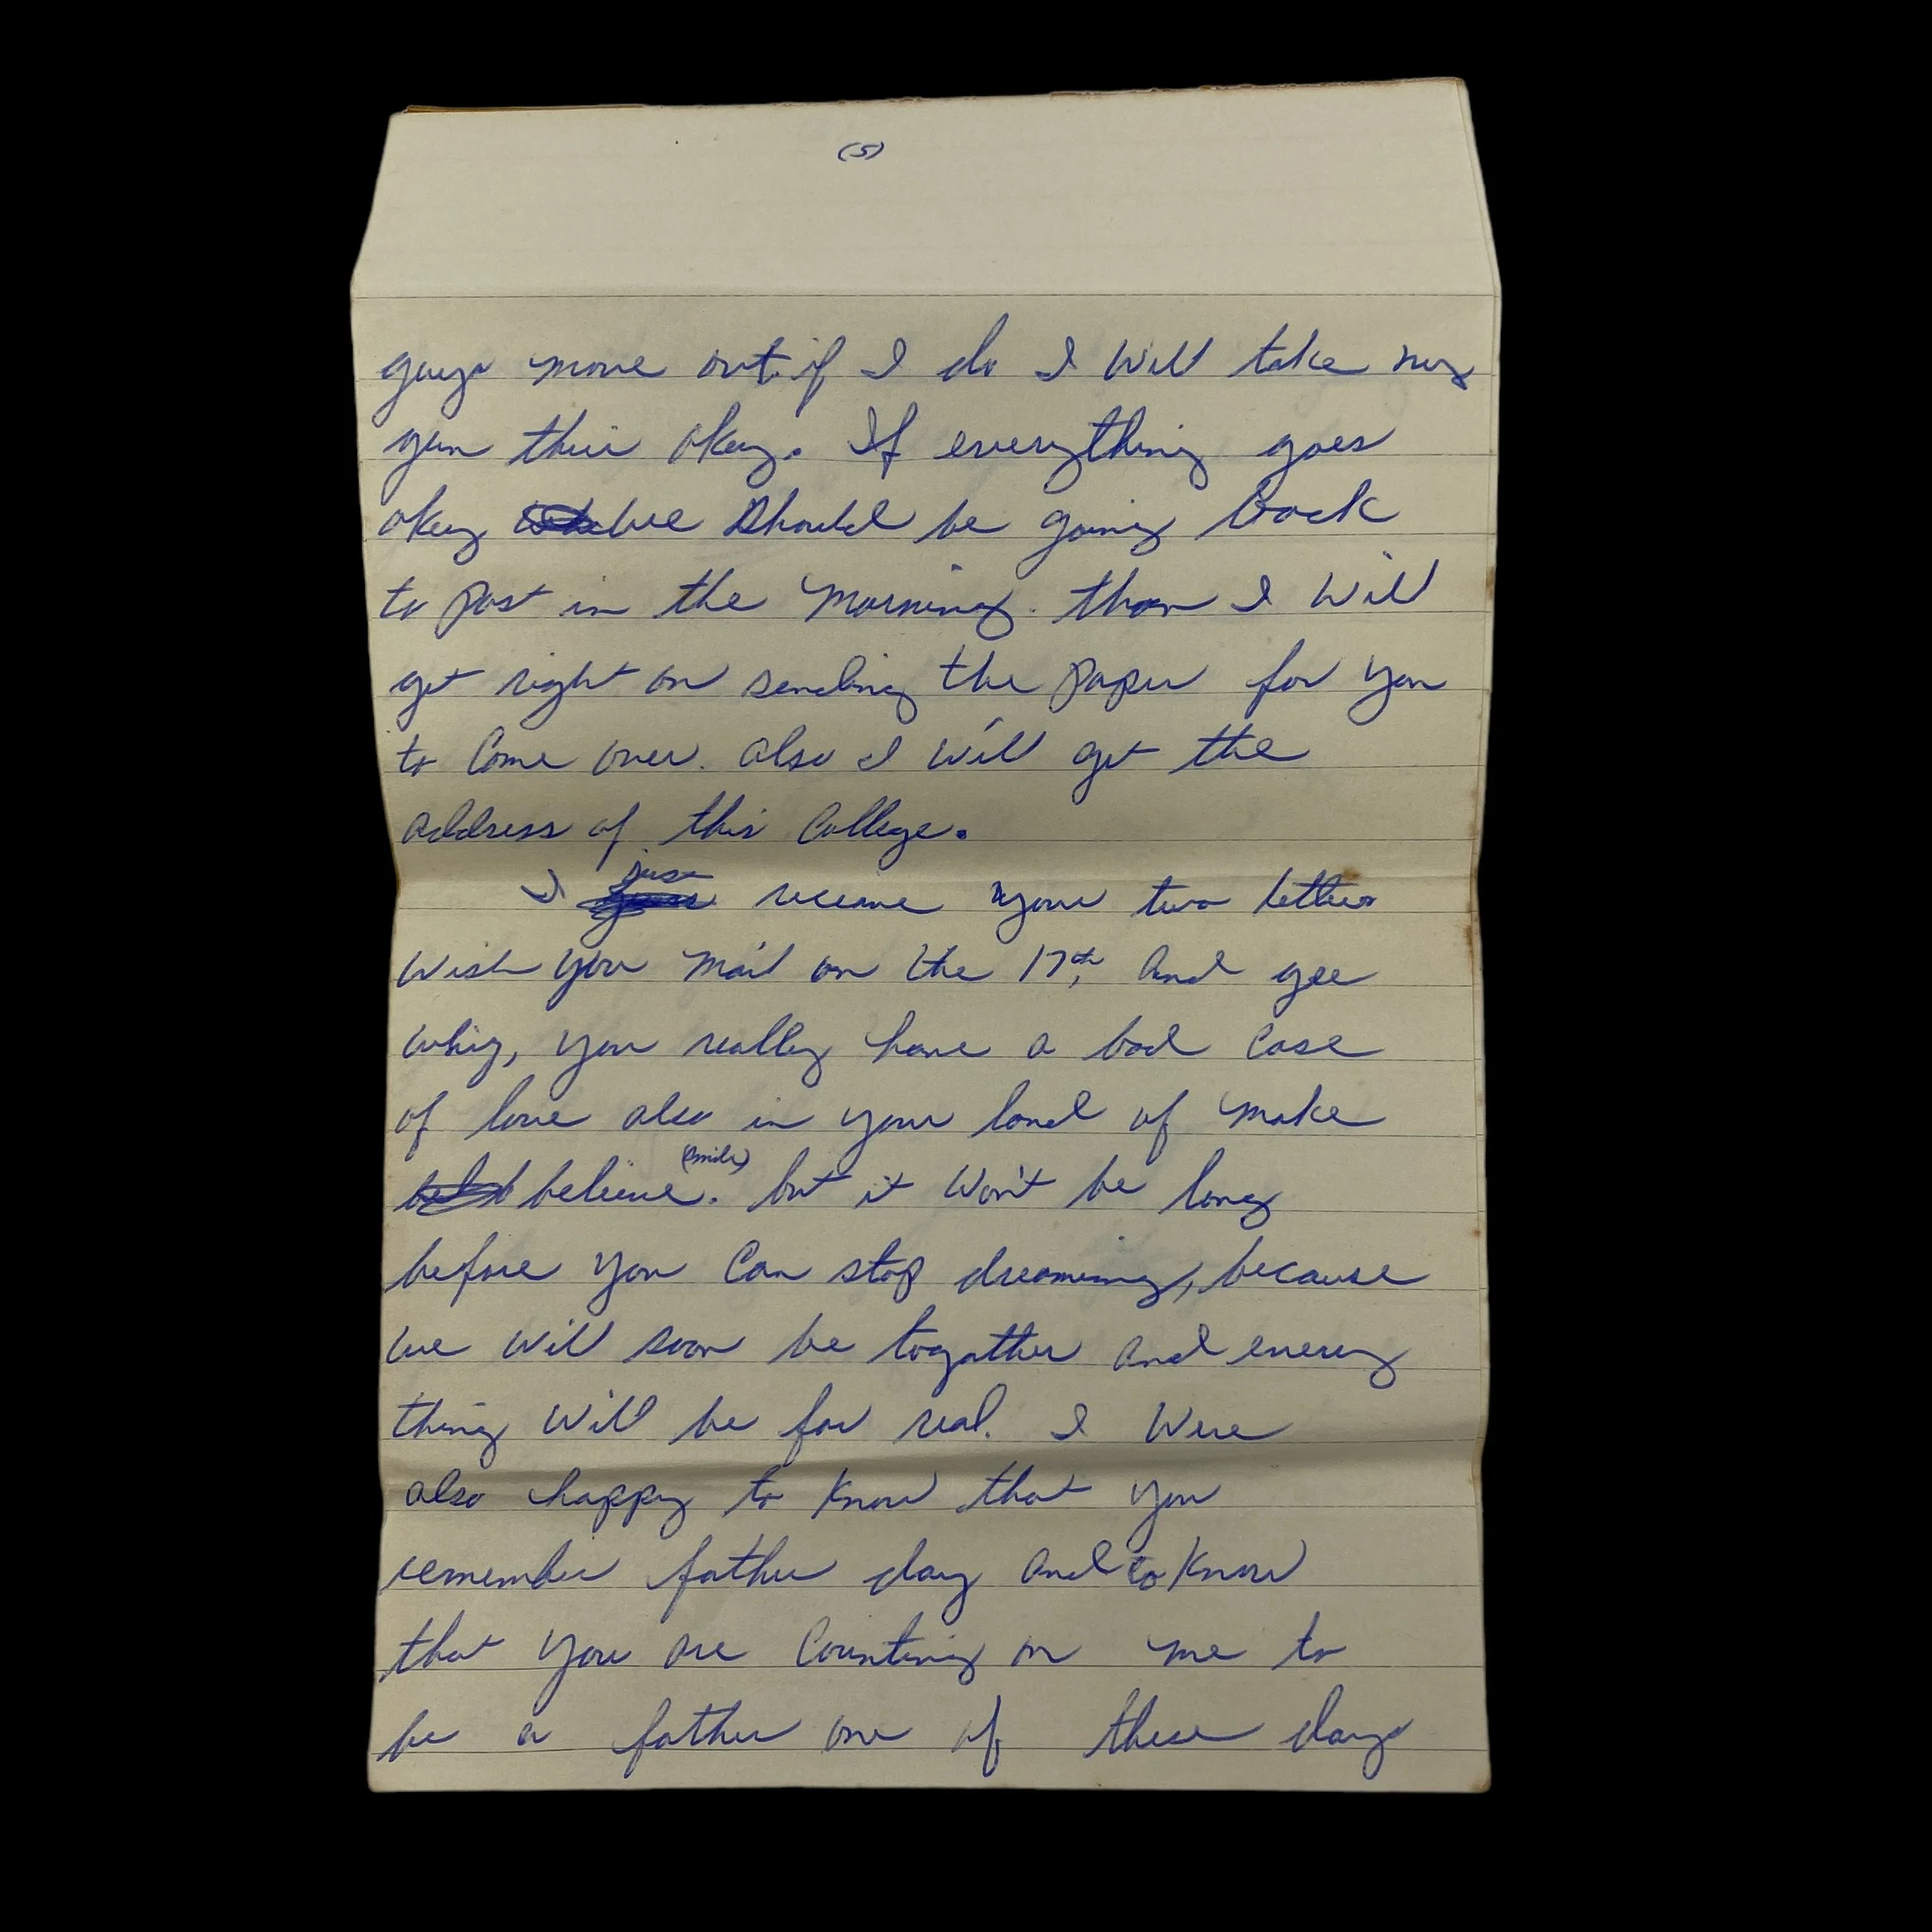 (5)
guys move out. if I do I will take my
gun their okay. If everything goes
okay we should be going back
to post in the morning. than I will
get right on sending the paper for you
to Come over. also I will get the
address of this College.
I just receave your two letters
wish you mail on the 17th, and gee
whiz, you really have a bad case
of love also in your land of make
believe. (smile) but it won't be long
before you Can stop dreaming, because
we will soon be togather and every
thing will be for real. I were
also happy to know that you
remember father day and to know
that you are Counting on me to
be a father one of these days